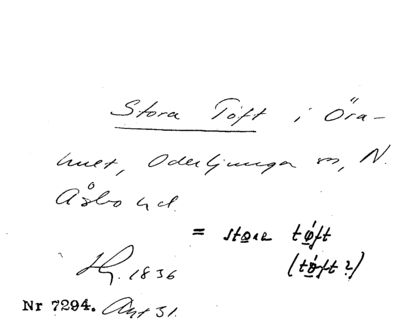 Stora Töft i Öra-
hult, Oderljunga sn, N.
Åsbo hd.
= stora tǿft
(tǿft?)
1836
Nr 7294. 51.